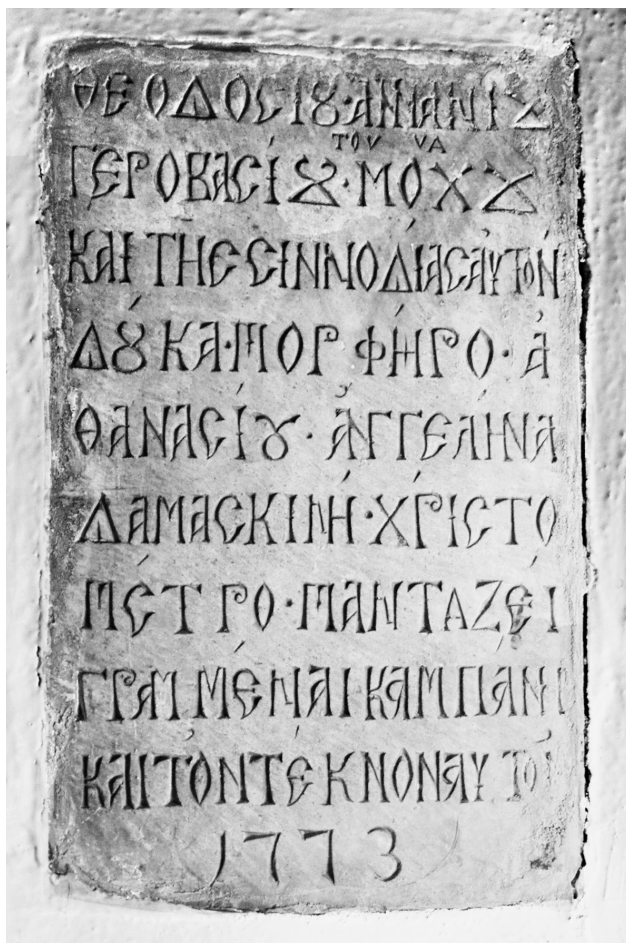 ΘΕΟΔΟСΙȢ·ΑΝΙΑΝΙȢ
ΤΟΥ ΥΑ
ΓΕΡΟΒΑСΙȢ·ΜΟΧȢ
ΚΑΙ ΤΗС СΙΝΝΟΔΙΑС ΑΥΤΟΝ
ΔȢΚΑ·ΠΟΡΦΗΡΟ·Α
ΘΑΝΑСΙȢ·ΑΓΓΕΛΗΝΑ
ΔΑΜΑСΚΙΝΗ·ΧΡΙСΤΟ
ΠΕΤΡΟ·ΠΑΝΤΑΖΕΙ
ΓΡΑΜΜΕΝΑΙ ΚΑΜΠΑΝΙ
ΚΑΙ ΤΟΝ ΤΕΚΝΟΝ ΑΥΤΟΙ
1773